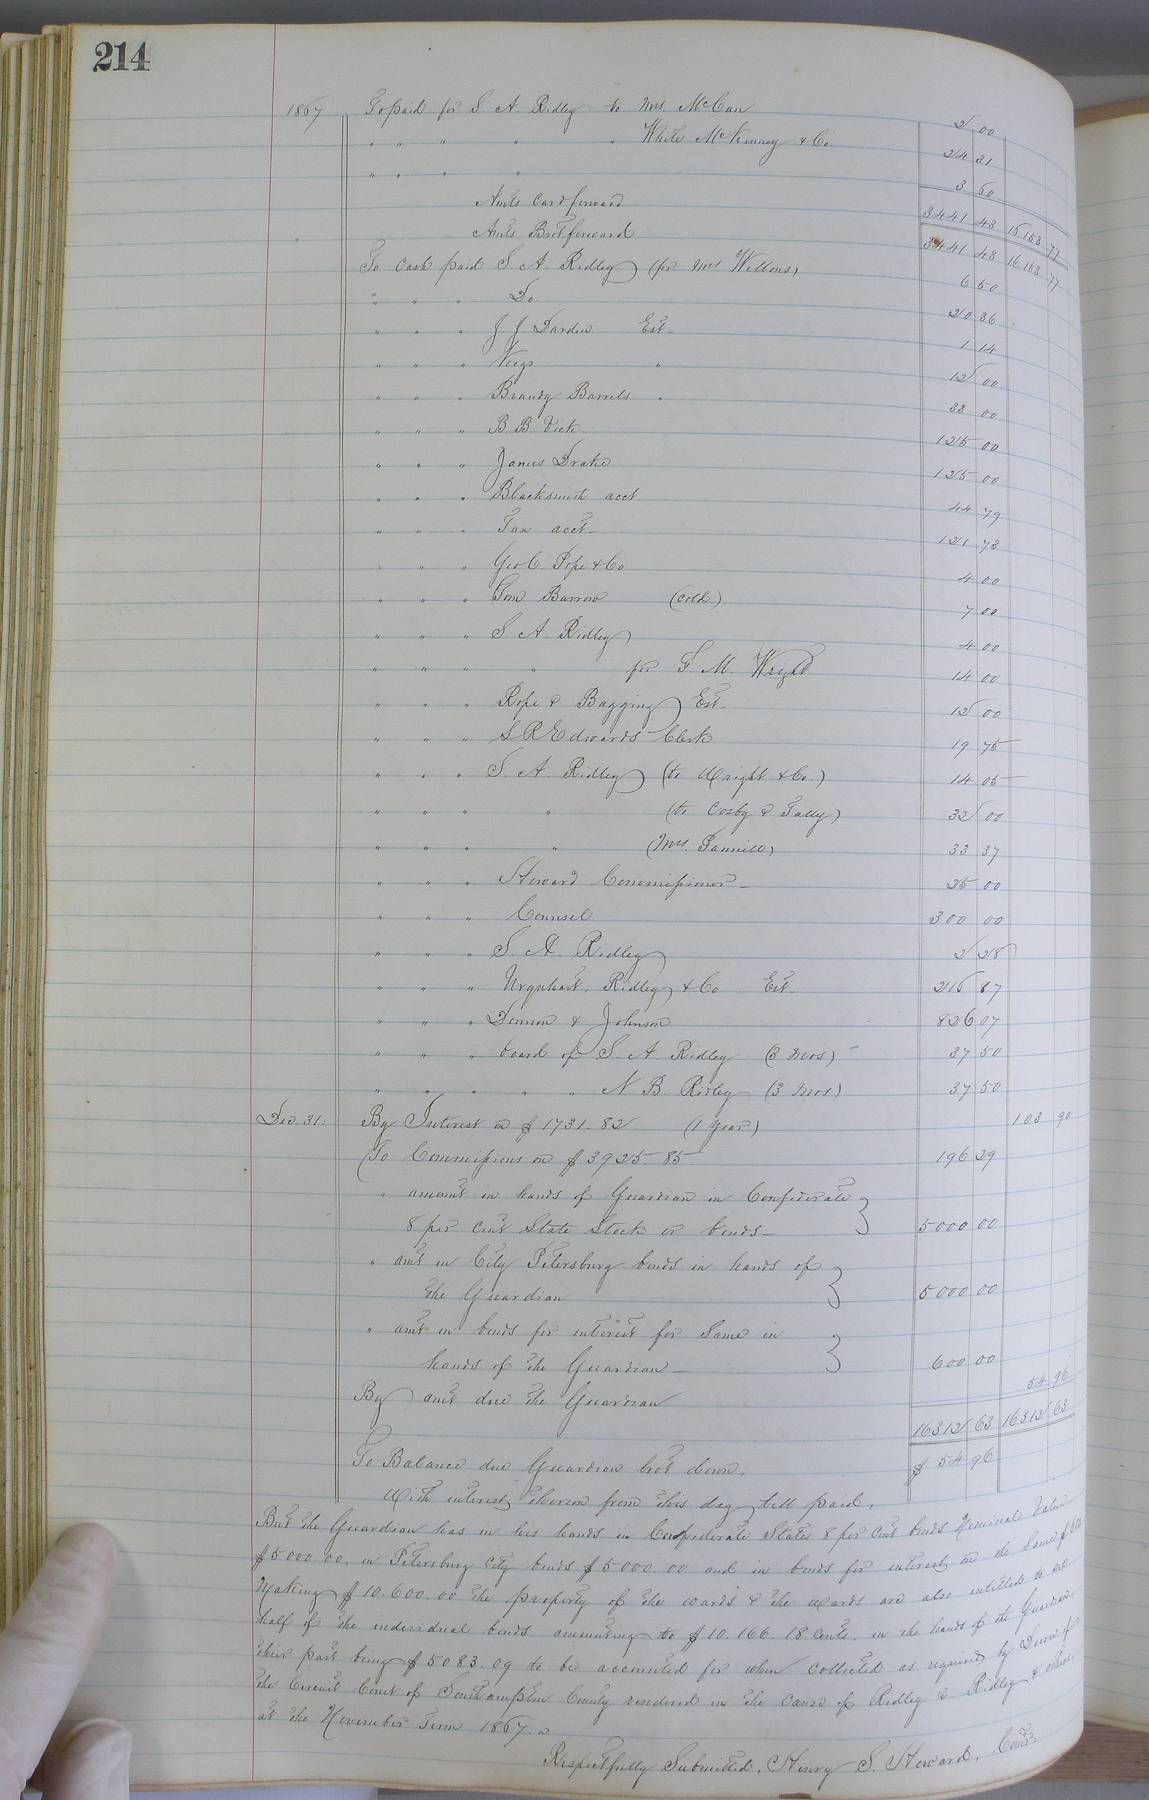 214
1867 To paid for S. A. Ridley to Mrs McCan 2 00
" " " " " White McKinney & Co. 24 31
" " " " 3 50
Amts card forward 3441 43 16153 77
Amts Brot forward 3441 43 16153 77
To Cash paid S. A. Ridley (for Mrs Wellons) 6 50
" " " Do 20 36
" " " J. J. Darden Est. 1 14
" " " " 12 00
" " " Brandy Barrels " 38 00
" " " B. B. Vick 125 00
" " " James Drake 125 00
" " " Blacksmith acct 44 79
" " " Tax acct 121 73
" " " Geo C. Pope & Co 4 00
" " " Tom Barrow (cold) 7 00
" " " S. A. Ridley 4 00
" " " " for F. M. Wright 14 00
" " " Rope & Bagging Est. 12 00
" " " L R Edwards Clerk 19 75
" " " S. A. Ridley (to Wright & Co.) 14 05
" " " " (to Cosby & Tally) 32 00
" " " " (Mrs. Pannill) 33 37
" " " Howard Commissioner 25 00
" " " Counsel 300 00
" " " S. A. Ridley 2 28
" " " Urquhart, Ridley & Co Est. 216 87
" " " Denson & Johnson 826 07
" " " board of S. A. Ridley (3 mos) 37 50
" " " " " N. B. Ridley (3 mos) 37 50
Dec. 31: By Interest on $1731.82 (1 year) 103 90
To Commissions on $3925 85 196 29
" amount in hands of Guardian in Confederate
8 per cent State Stock or bonds 5000 00
" amt in City Petersburg bonds in hands of
the Guardian 5000 00
" amt in bonds for interest for Same in
hands of the Guardian 600 00
By amt due the Guardian 54 96
16312 63 16312 63
To Balance due Guardian brot down. $ 54 96
With interest thereon from this day till paid.
But the Guardian has in his hands in Confederate States 8 per cent bonds Nominal Value
$5000.00, in Petersburg City bonds $5000.00 and in bonds for interest on the same $600
Making $10.600.00 the property of the wards & the wards are also entitled to one
half of the individual bonds amounting to $10.166.18 cents. in the hands of the Guardian
their part being $5083.09 to be accounted for when collected as required by Decree of
the Circuit Court of Southampton County rendered in the cause of Ridley vs Ridley & others
at the November Term 1867.
Respectfully Submitted, Henry S. Howard, Comr.